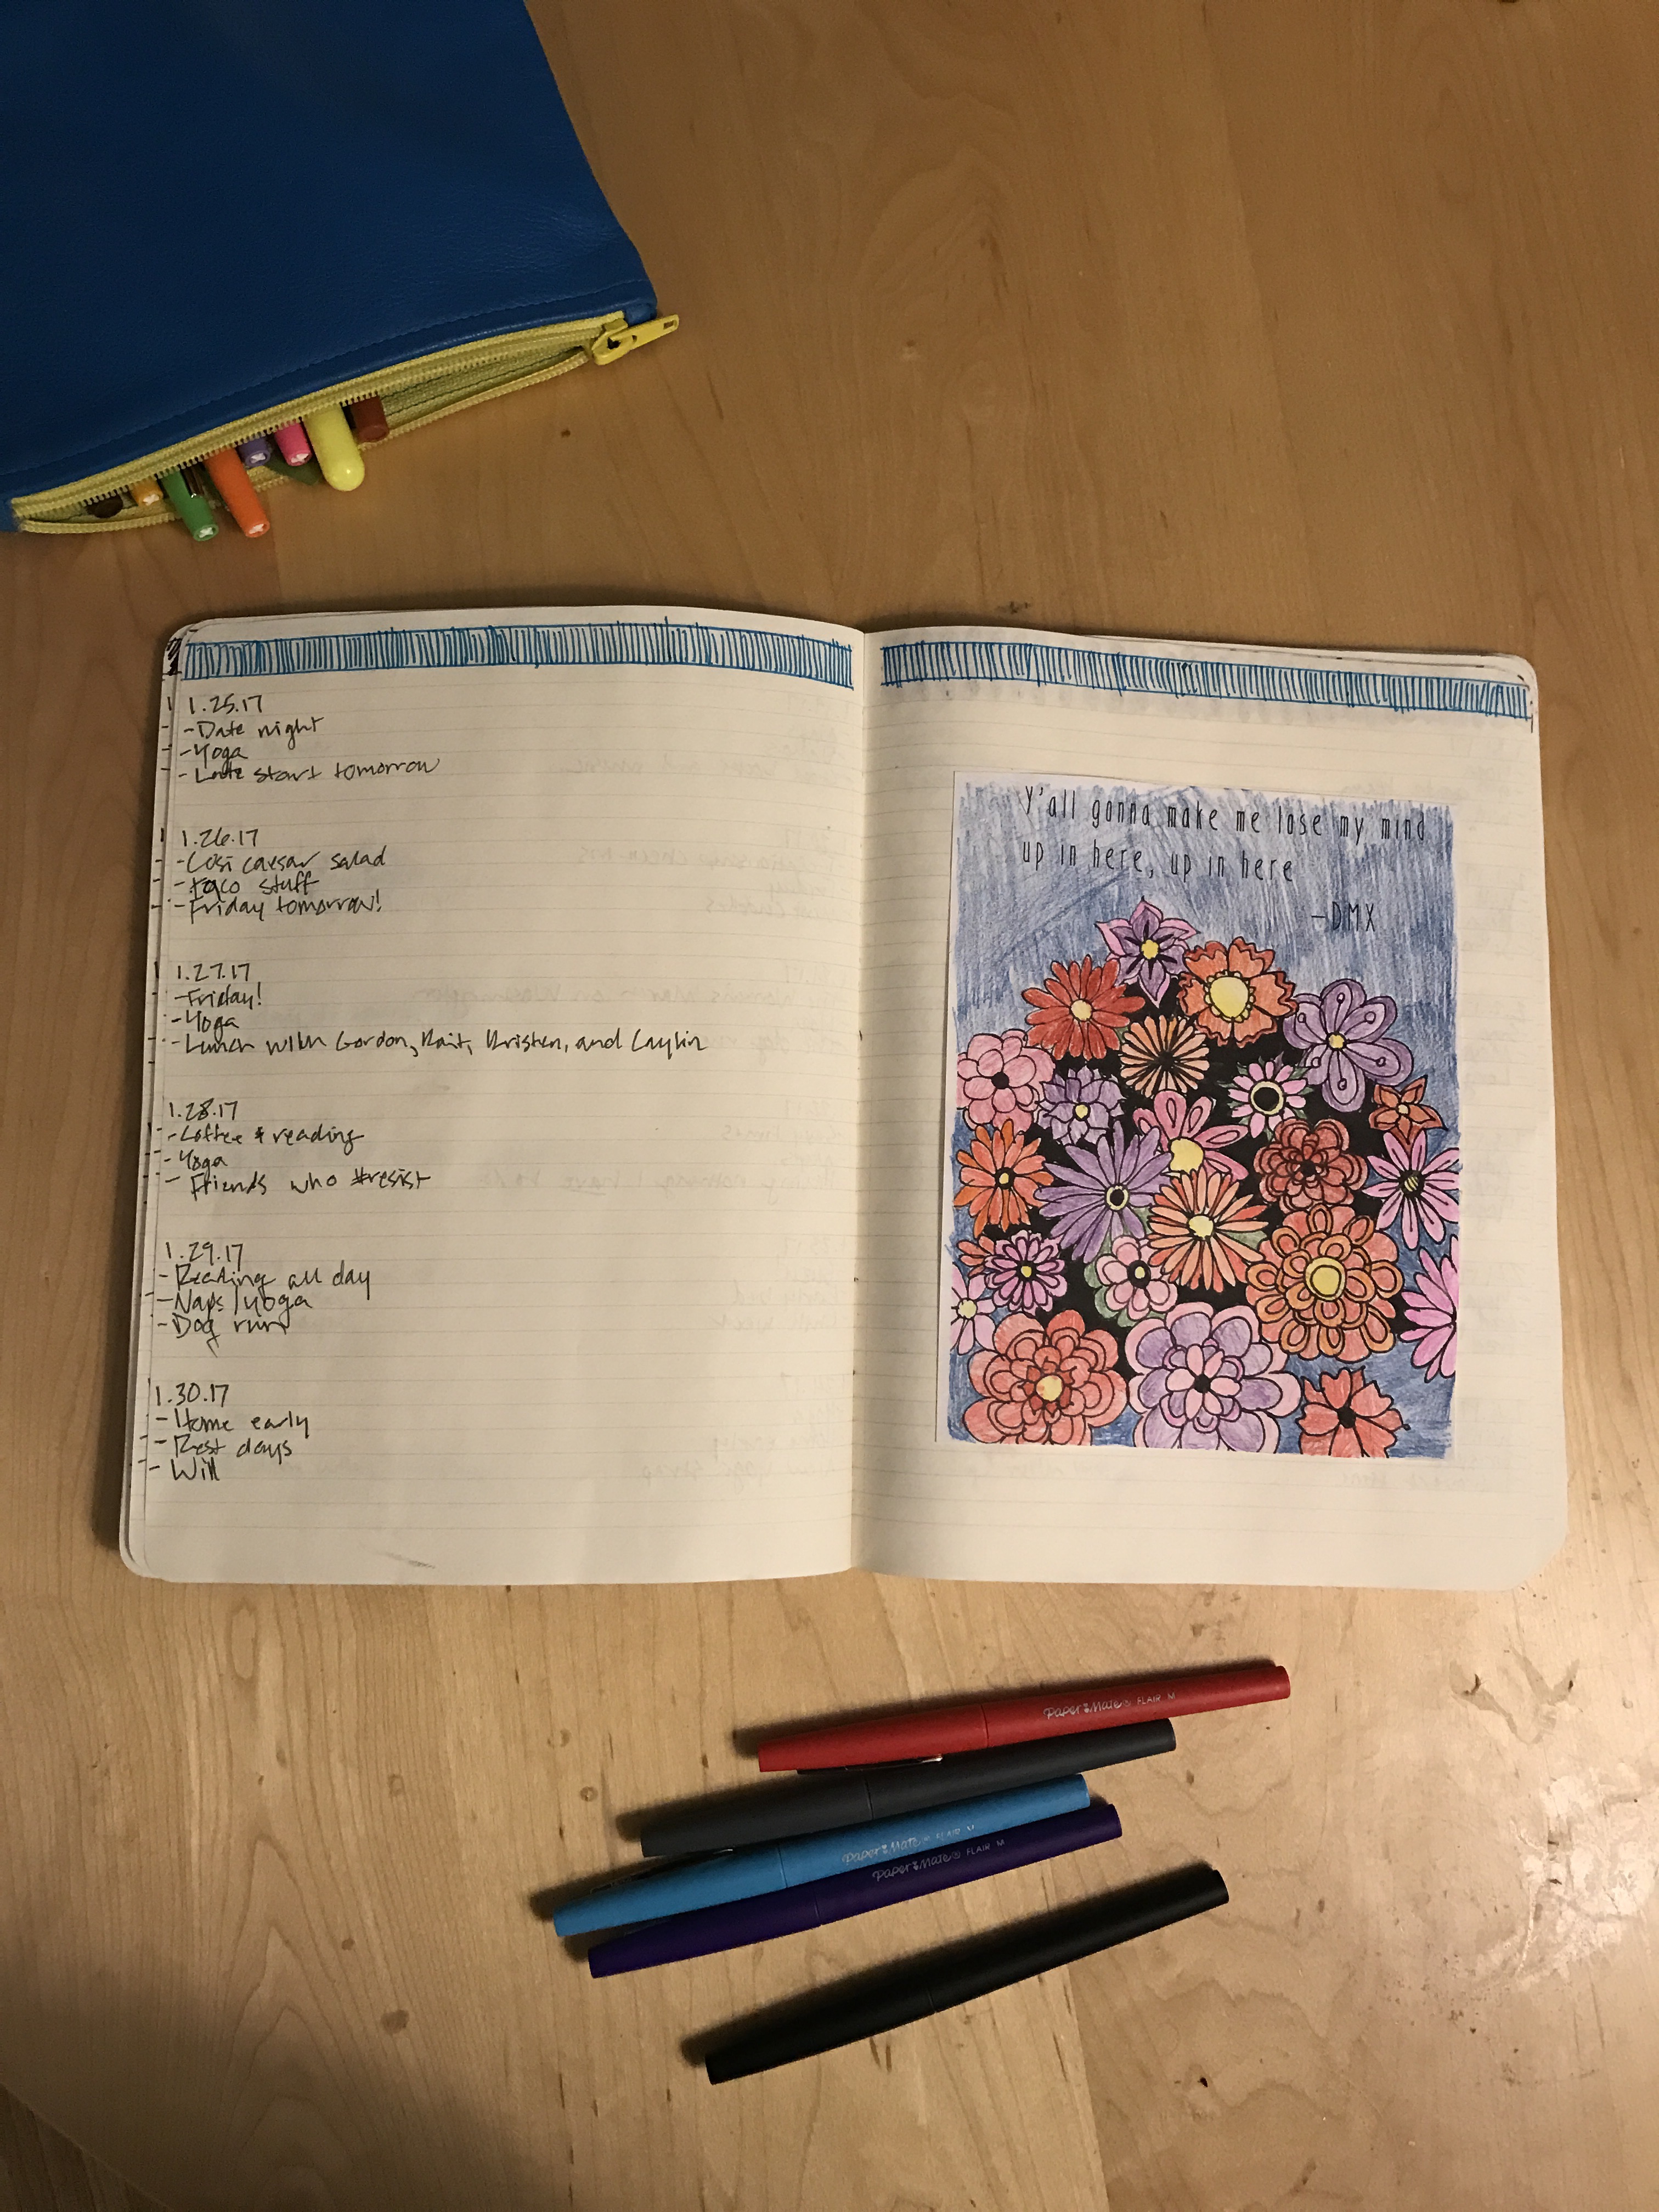 1.25.17
-Date night
-Yoga
-Late start tomorrow
1.26.17
-Cosi caesar salad
-FoCo stuff
-Friday tomorrow!
1.27.17
-Friday!
-Yoga
-Lunch with Gordon, Kait, Kristen, and Caylin
1.28.17
-Coffee & reading
-Yoga
-Friends who #resist
1.29.17
-Reading all day
-Naps/yoga
-Dog run
1.30.17
-Home early
-Rest days
-Will
Y'all gonna make me lose my mind
up in here, up in here
-DMX
Paper Mate® FLAIR M
Paper Mate® FLAIR M
Paper Mate® FLAIR M